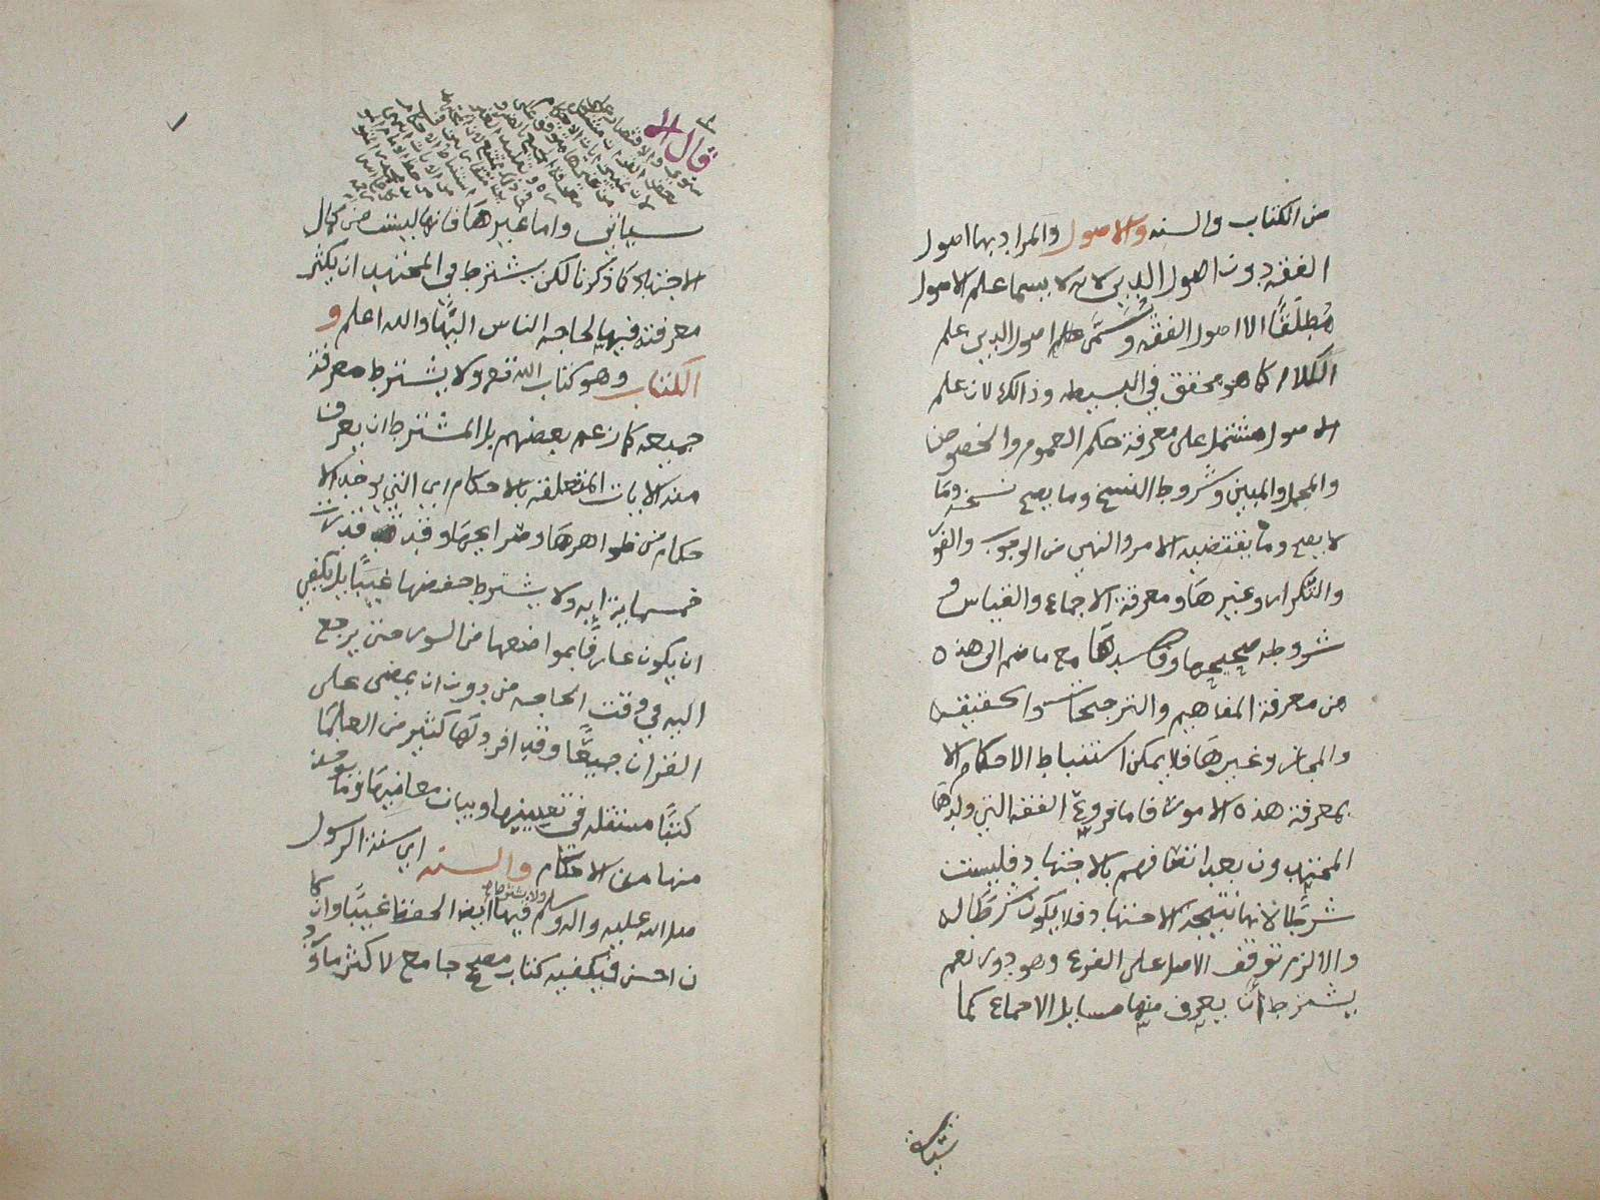 من الكتاب والسنه والاصول والمراد بها اصول
الفقه دون اصول الدين لانه لا يسما علم الاصول
مُطلقًا الا اصول الفقه وسُمَّى علم اصول الدين علم
الكلام كما هو محقق في البسيطه وذالك لان علم
الاصول مشتمل على معرفة حكم العموم والخصوص
والمجمل والمبين وشروط النسخ وما يصح نسخه وما
لا يصح وما يقتضيه الامر والنهي من الوجوب والفور
والتكرار وغيرها ومعرفة الاجماع والقياس و
شروطه صحيحها وفاسدها مع ما ضم الى هذه
من معرفة المفاهيم والترجيحات والحقيقه
والمجاز وغيرها فلا يمكن استنباط الاحكام الا
بمعرفة هذه الامور فاما فروع الفقه التي ولدها
المجتهدون بعد اتصافهم بالاجتهاد فليست
شرطًا لانها نتيجة الاجتهاد فلا يكون شرطًا له
والا لزم توقف الاصل على الفرع وهو دور نعم
يشترط ان يعرف منها مسايل الاجماع كما
سياتي
قال
سياتي واما غيرها فانها ليست من كمال
الاجتهاد كما ذكرنا لكن يشترط في المجتهد ان يكثر
معرفته فيها لحاجه الناس اليها والله اعلم و
الكتاب وهو كتاب الله تعم ولا يشترط معرفة
جميعه كما زعم بعضهم بل المشترط ان يعرف
منه الايات المتعلقة بالاحكام اي التي يوخذ الا
حكام من ظواهرها وصرايحها وقد قدرت
خمسماية ايه ولا يشترط حفضها غيبًا بل يكفي
ان يكون عارفًا بمواضعها من السور حتى يرجع
اليه في وقت الحاجه من دون ان يمضى على
القران جميعًا وقد افرد لها كثير من العلما
كتبًا مستقله في تعيينها وبيان معانيها وما يوخذ
منها من الاحكام والسنه اي سنة الرسول
صلى الله عليه واله وسلم ولا يشترط فيها ايضا الحفظ غيبًا وان كا
ن احسن فيكفيه كتاب مصحح جامع لاكثر ما ورد